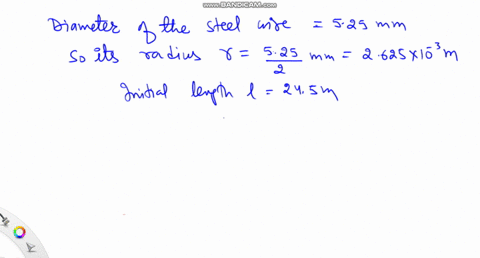 www.BANDICAM.com
Diameter of the steel wire = 5.25 mm
So its radius r = 5.25/2 mm = 2.625×10⁻³ m
Initial length l = 24.5m